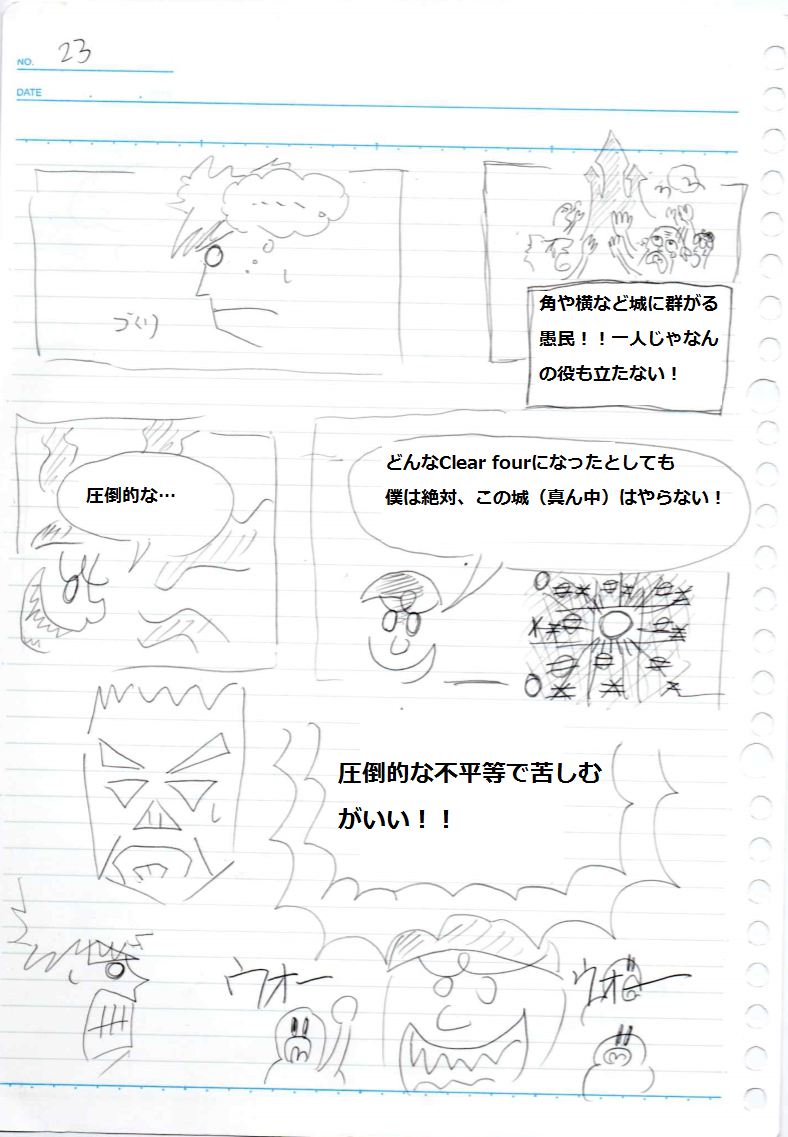 NO. 23
DATE
角や横など城に群がる
愚民！！一人じゃなん
の役も立たない！
づくり
どんなClear fourになったとしても
僕は絶対、この城（真ん中）はやらない！
圧倒的な…
圧倒的な不平等で苦しむ
がいい！！
ウオー
ウオー